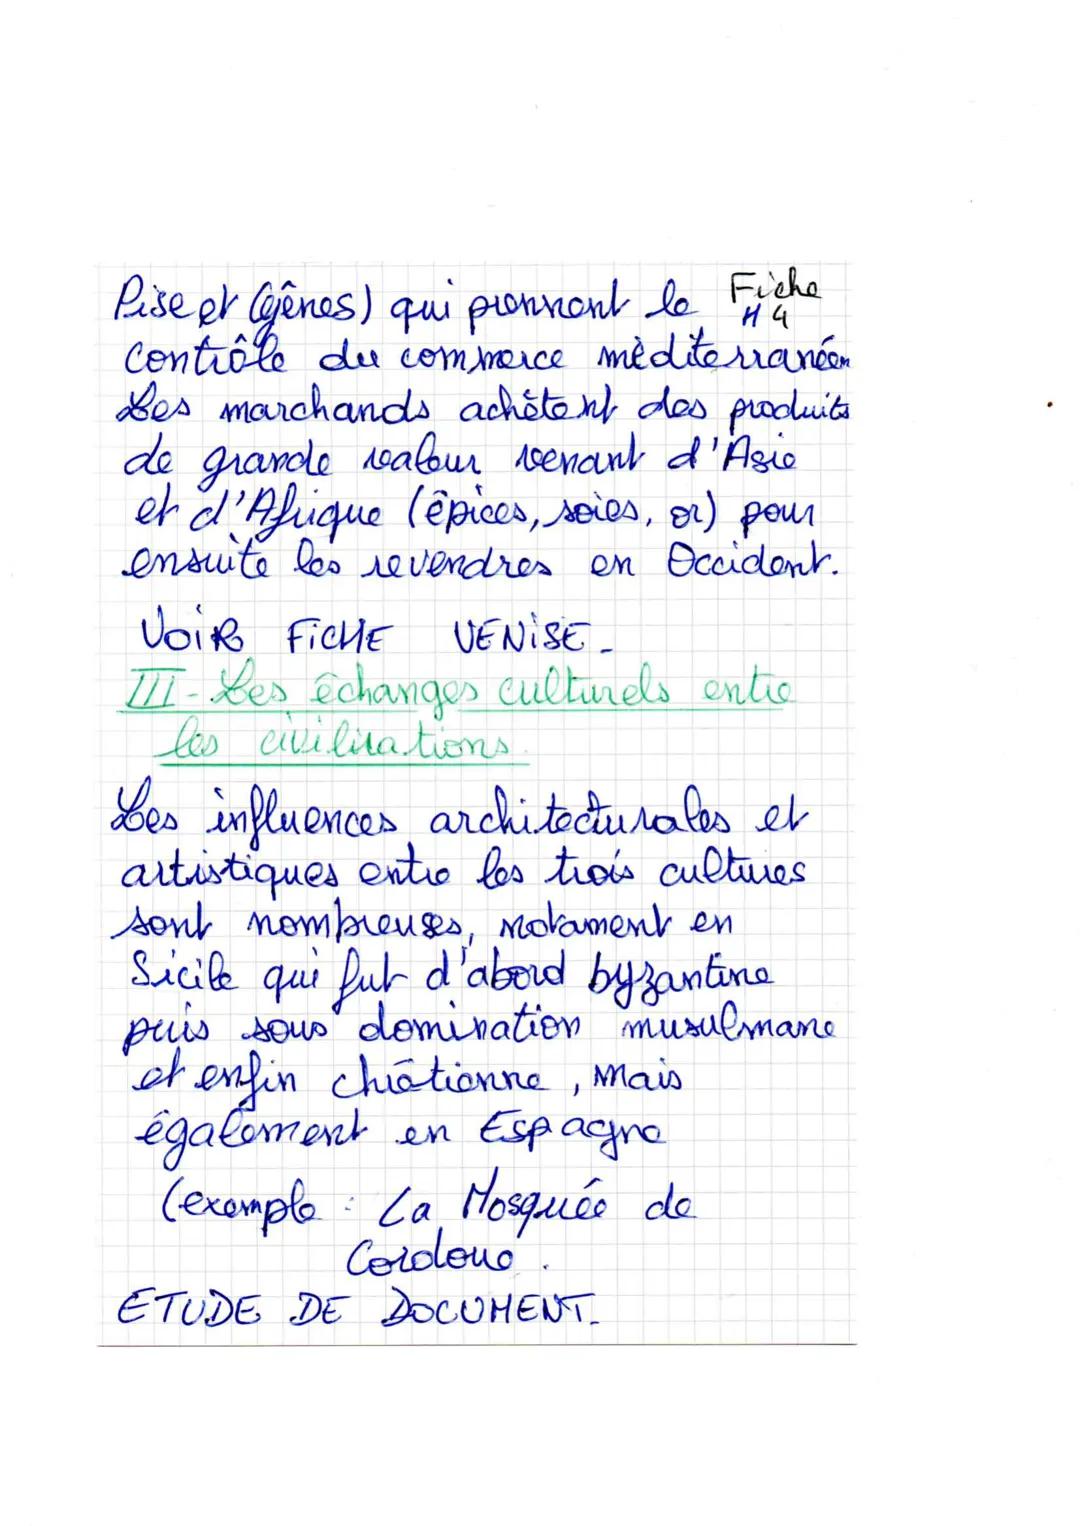 Pise et Gênes) qui prennent le Fiche
H4
contrôle du commerce méditerranéen
Les marchands achètent des produits
de grande valeur venant d'Asie
et d'Afrique (épices, soies, or) pour
ensuite les revendres en Occident.
VOIR FICHE VENISE_
III - Les échanges culturels entre
les civilisations.
Les influences architecturales et
artistiques entre les trois cultures
sont nombreuses, notament en
Sicile qui fut d'abord byzantine
puis sous domination musulmane
et enfin chrétienne, mais
également en Espagne
(exemple : La Mosquée de
Cordoue.
ETUDE DE DOCUMENT.